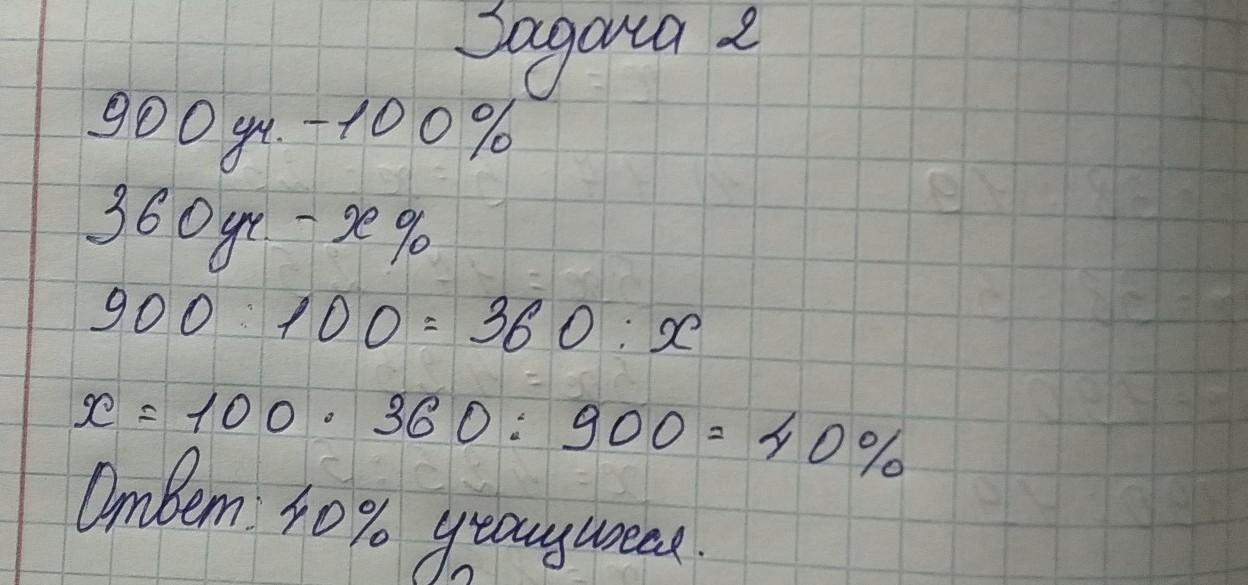 Задача 2
900 уч. - 100%
360 уч. - x%
900 : 100 = 360 : x
x = 100 · 360 : 900 = 40%
Ответ: 40% учащихся.